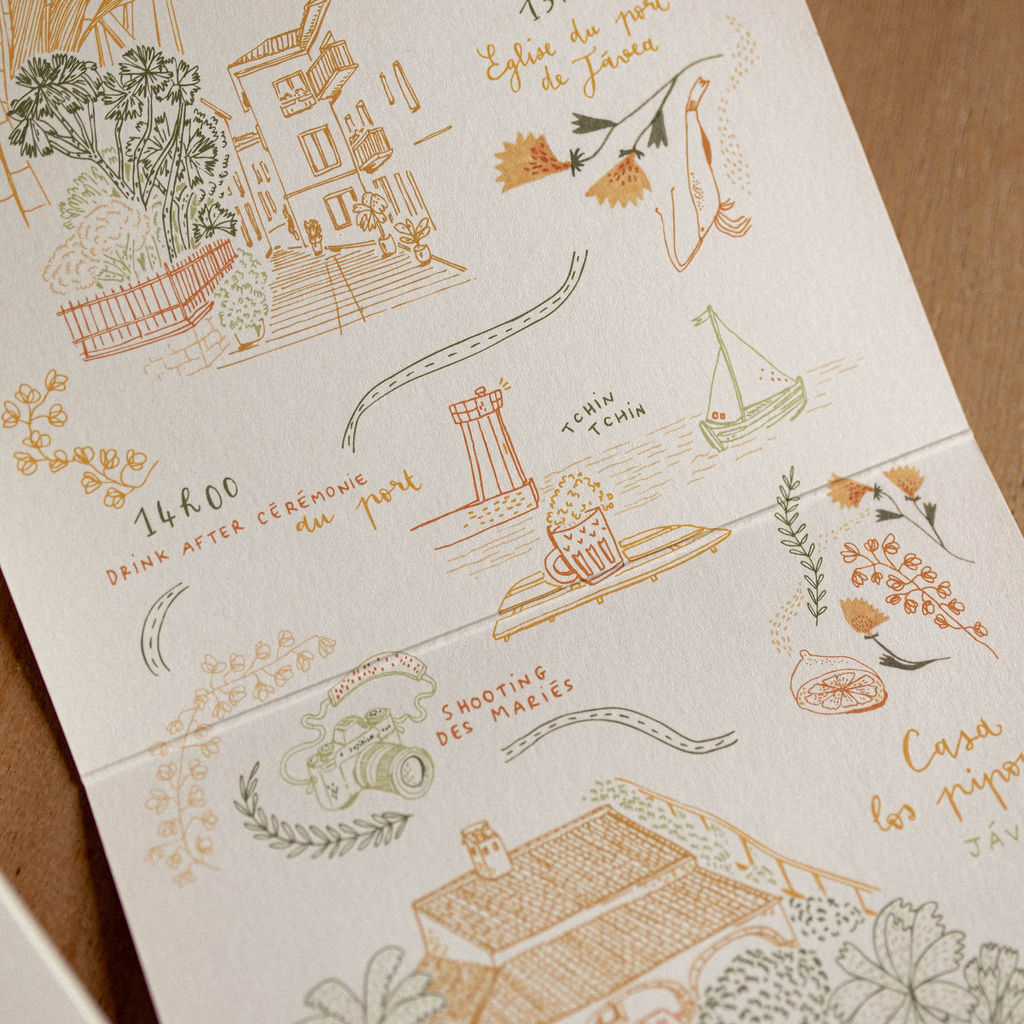 Eglise du port
de Jávea
TCHIN
TCHIN
14h00
DRINK AFTER CÉRÉMONIE
du port
SHOOTING
DES MARIÉS
Casa
los